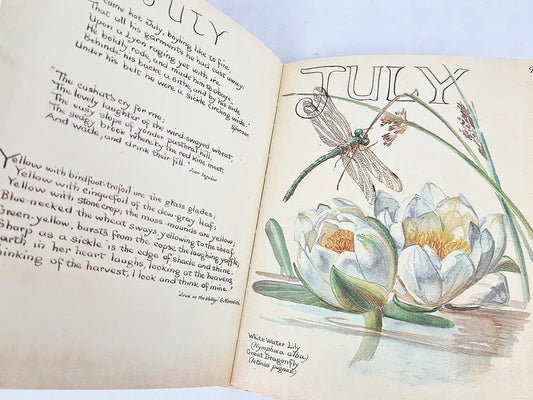 JULY
came hot July, boyling like to fire,
That all his garments he had cast away.
Upon a Lyon raging yet with ire
He boldly rode, and made him to obaye.
Behinde his backe a sithe, and by his side
Under his belt he wore a sickle circling wide."
Spenser
The cushat's cry for me;
The lovely laughter of the wind-swayed wheat;
The easy slope of yonder pastoral hill;
The sedgy brook whereby the red kine meet
And wade, and drink their fill."
Jean Ingelow
Yellow with birdfoot-trefoil are the grass glades;
Yellow with cinquefoil of the dew-gray leaf;
Yellow with stone crop; the moss-mounds are yellow;
Blue-necked the wheat sways, yellowing to the sheaf.
Green-yellow, bursts from the copse the laughing yaffle;
Sharp as a sickle is the edge of shade and shine.
earth in her heart laughs, looking at the heavens,
thinking of the harvest, I look and think of mine.'
'Love in the Valley' G. Meredith
JULY
White Water Lily
(Nymphœa alba)
Great Dragonfly